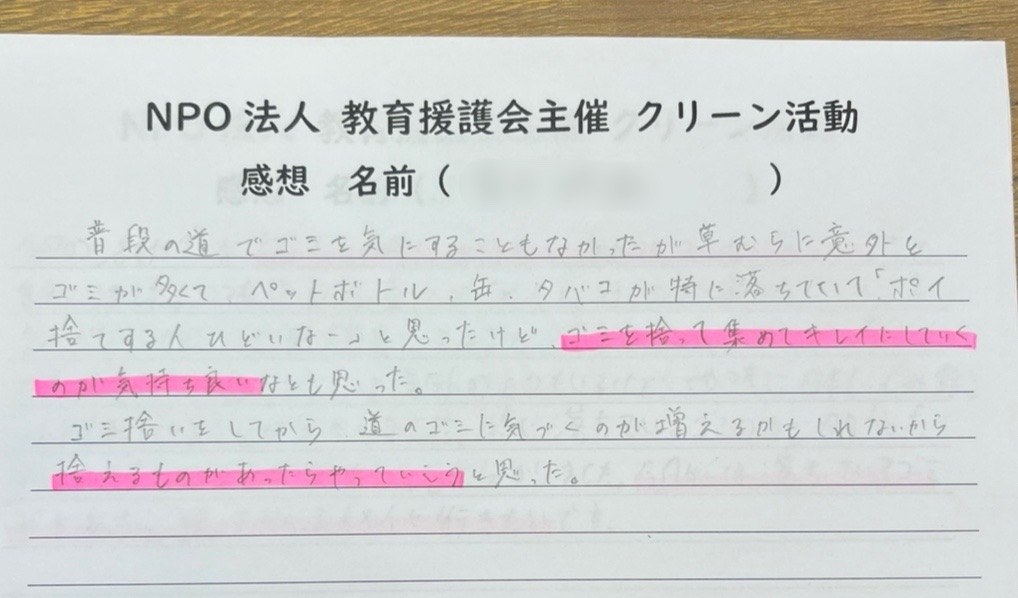 NPO 法人 教育援護会主催 クリーン活動
感想 名前 ( )
普段の道でゴミを気にすることもなかったが草むらに意外と
ゴミが多くて ペットボトル、缶、タバコが特に落ちていて「ポイ
捨てする人ひどいなー」と思ったけど、ゴミを捨って集めてキレイにしていく
のが気持ち良いなとも思った。
ゴミ捨いをしてから 道のゴミに気づくのが増えるかもしれないから
捨えるものがあったらやっていこうと思った。